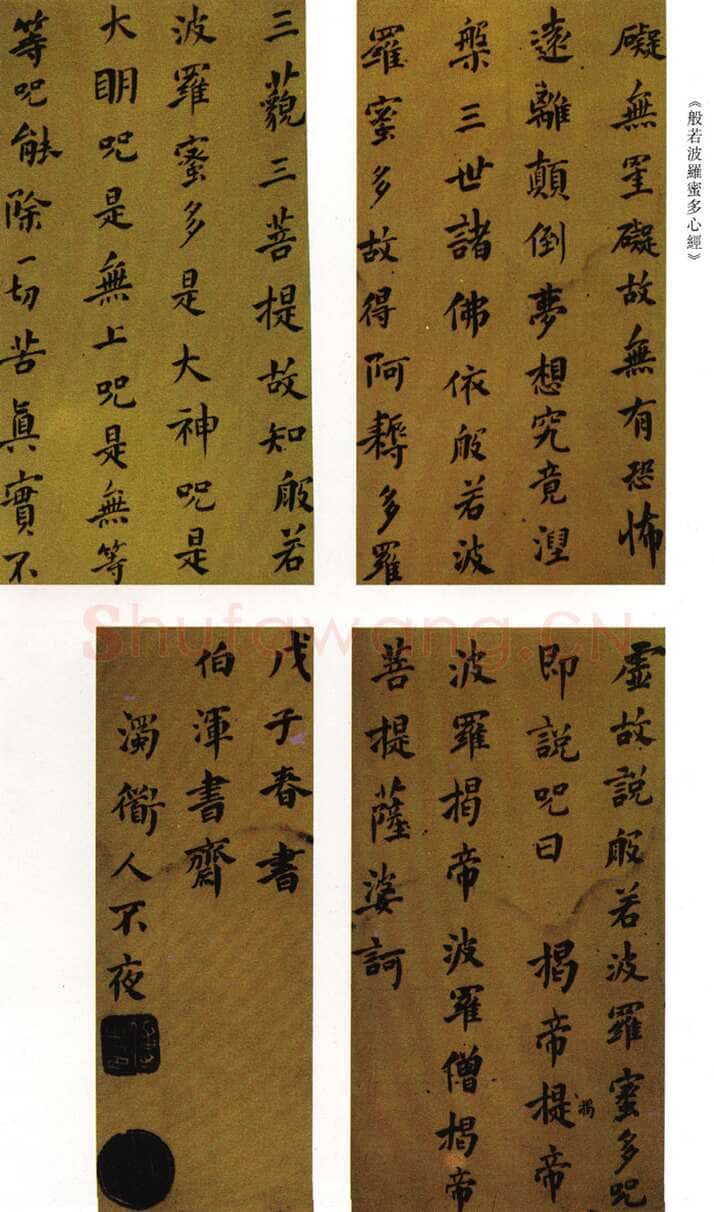 《般若波羅蜜多心經》
礙無罣礙故無有恐怖
遠離顛倒夢想究竟涅
槃三世諸佛依般若波
羅蜜多故得阿耨多羅
三藐三菩提故知般若
波羅蜜多是大神呪是
大明呪是無上呪是無等
等呪能除一切苦眞實不
虛故說般若波羅蜜多呪
即說呪曰 揭帝提帝
揭
波羅揭帝波羅僧揭帝
菩提薩婆訶
戊子春書
伯渾書齋
濁衜人不夜
Shufawang.CN